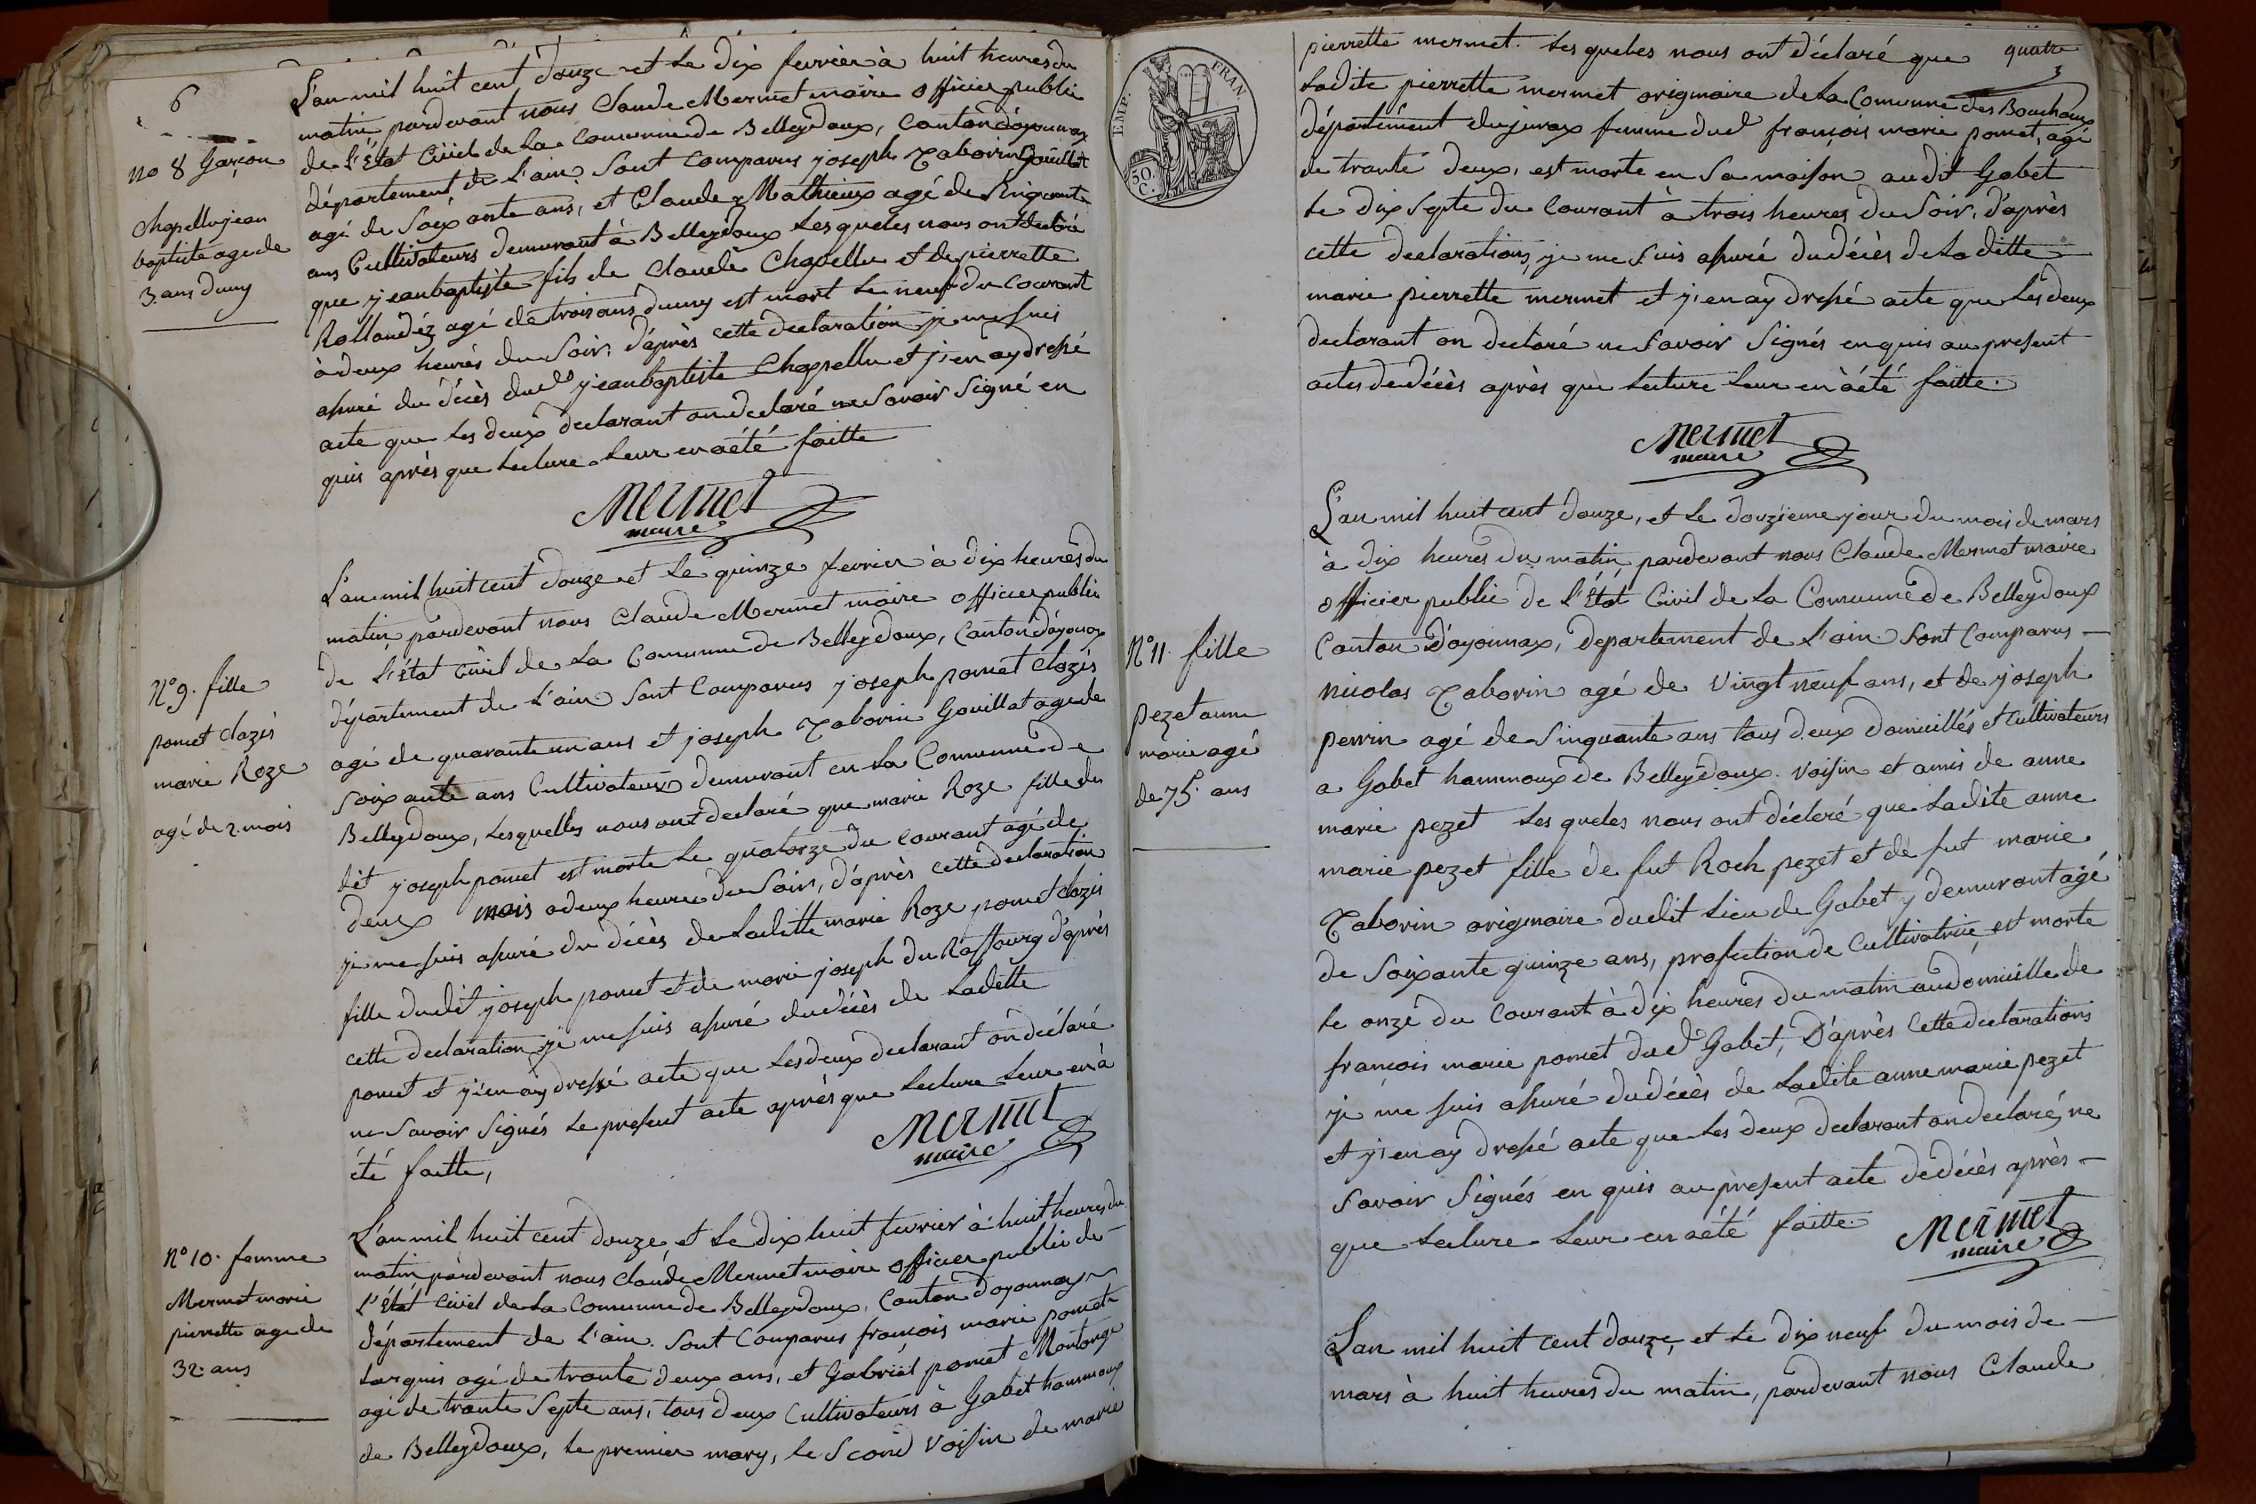 6
no 8 Garçon
Chapellu jean
baptiste age de
3 ans dumy
L'an mil huit cent douze et le dix fevrier à huit heures du
matin pardevant nous Claude Mermet maire officier public
de l'État Civil de la Comunne de Belleydoux, Canton d'oyonnax
département de l'ain Sont Comparus joseph Taborin Gouillat
agé de Soixante ans, et Claude Mathieux agé de Sinquante
ans Cultivateurs demurant à Belleydoux les queles nous ont declaré
que jean baptiste fils de Claude Chapellu et de pierrette
Rollandéz agé de trois ans dumy est mort le neuf du Courant
à deux heures du Soir, d'après cette declaration je me suis
assuré du décès dud jean baptiste Chapellu et j'en ay dressé
acte que les deux declarant on declaré ne Savoir Signé en
quis après que lecture leur en a été faitte
Mermet
maire
N° 9. fille
pomet Clazis
marie Roze
agé de 2. mois
L'an mil huit cent douze et le quinze fevrier à dix heures du
matin pardevant nous Claude Mermet maire officier public
de l'État Civil de la Comunne de Belleydoux, Canton d'oyonax
département de l'ain Sont Comparus joseph pomet Clazis
agé de quarante un ans et joseph Taborin Gouillat age de
Soixante ans Cultivateurs demurant en la Comunne de
Belleydoux, lesquelles nous ont declaré que marie Roze fille du
dit joseph pomet est morte le quatorze du Courant agé de
deux mois a deux heures du Soir, d'après cette declaration
je me suis assuré du décès de laditte marie Roze pomet Clazis
fille dudit joseph pomet et de marie joseph du Raffourg d'après
cette declaration je me suis assuré du décès de laditte
pomet et j'en ay dressé acte que les deux declarant on déclaré
ne Savoir Signés le present acte après que lecture leur en à
été faitte,
Mermet
maire
N° 10. femme
Mermet marie
pierrette age de
32. ans
L'an mil huit cent douze, et le dix huit fevrier à huit heures du
matin pardevant nous Claude Mermet maire officier public de
l'État Civil de la Comunne de Belleydoux, Canton d'oyonnax
département de l'ain. Sont Comparus francois marie pomet
Larguis agé de trante deux ans, et Gabriel pomet Montange
agé de trante Septe ans, tous deux Cultivateurs à Gabet hammaux
de Belleydoux, le premier mary, le Scond Voisin de marie
EMP. FRAN
50.
C.
quatre
pierrette mermet. les queles nous ont déclaré que
ladite pierrette mermet originaire de la Comunne des Bouchoux
département du jurax femme dud françois marie pomet, agé
de trante deux, est morte en Sa maison audit Gabet
le dix Septe du Courant à trois heures du Soir, d'après
cette declarations, je me Suis assuré du décès de la ditte
marie pierrette mermet et j'en ay dressé acte que les deux
declarant on declaré ne Savoir Signés en quis au present
actes de décès après que lecture leur en à été faitte.
Mermet
maire
N° 11. fille
pezet anne
marie agé
de 75. ans
L'an mil huit cent douze, et le douzieme jour du mois de mars
à dix heures du matin pardevant nous Claude Mermet maire
officier public de l'État Civil de la Comunne de Belleydoux
Canton D'oyonnax, departement de l'ain Sont Comparus
nicolas Taborin agé de Vingt neuf ans, et de joseph
perrin agé de Sinquante ans tous deux domicillés et Cultivateurs
a Gabet hammoux de Belleydoux. Voisin et amis de anne
marie pezet les queles nous ont décleré que ladite anne
marie pezet fille de fut Roch pezet et de fut marie
Taborin originaire dudit lieu de Gabet y demurant agé
de Soixante quinze ans, profection de Cultivatrice, est morte
le onze du Courant à dix heures du matin au domicille de
françois marie pomet dud Gabet, D'après Cette declarations
je me suis assuré du décès de ladite anne marie pezet
et j'en ay dressé acte que les deux declarant on declaré, ne
Savoir Signés en quis au present acte de décès après
que lecture leur en a été faitte.
Mermet
maire
L'an mil huit cent douze, et le dix neuf du mois de
mars à huit heures du matin, pardevant nous Claude